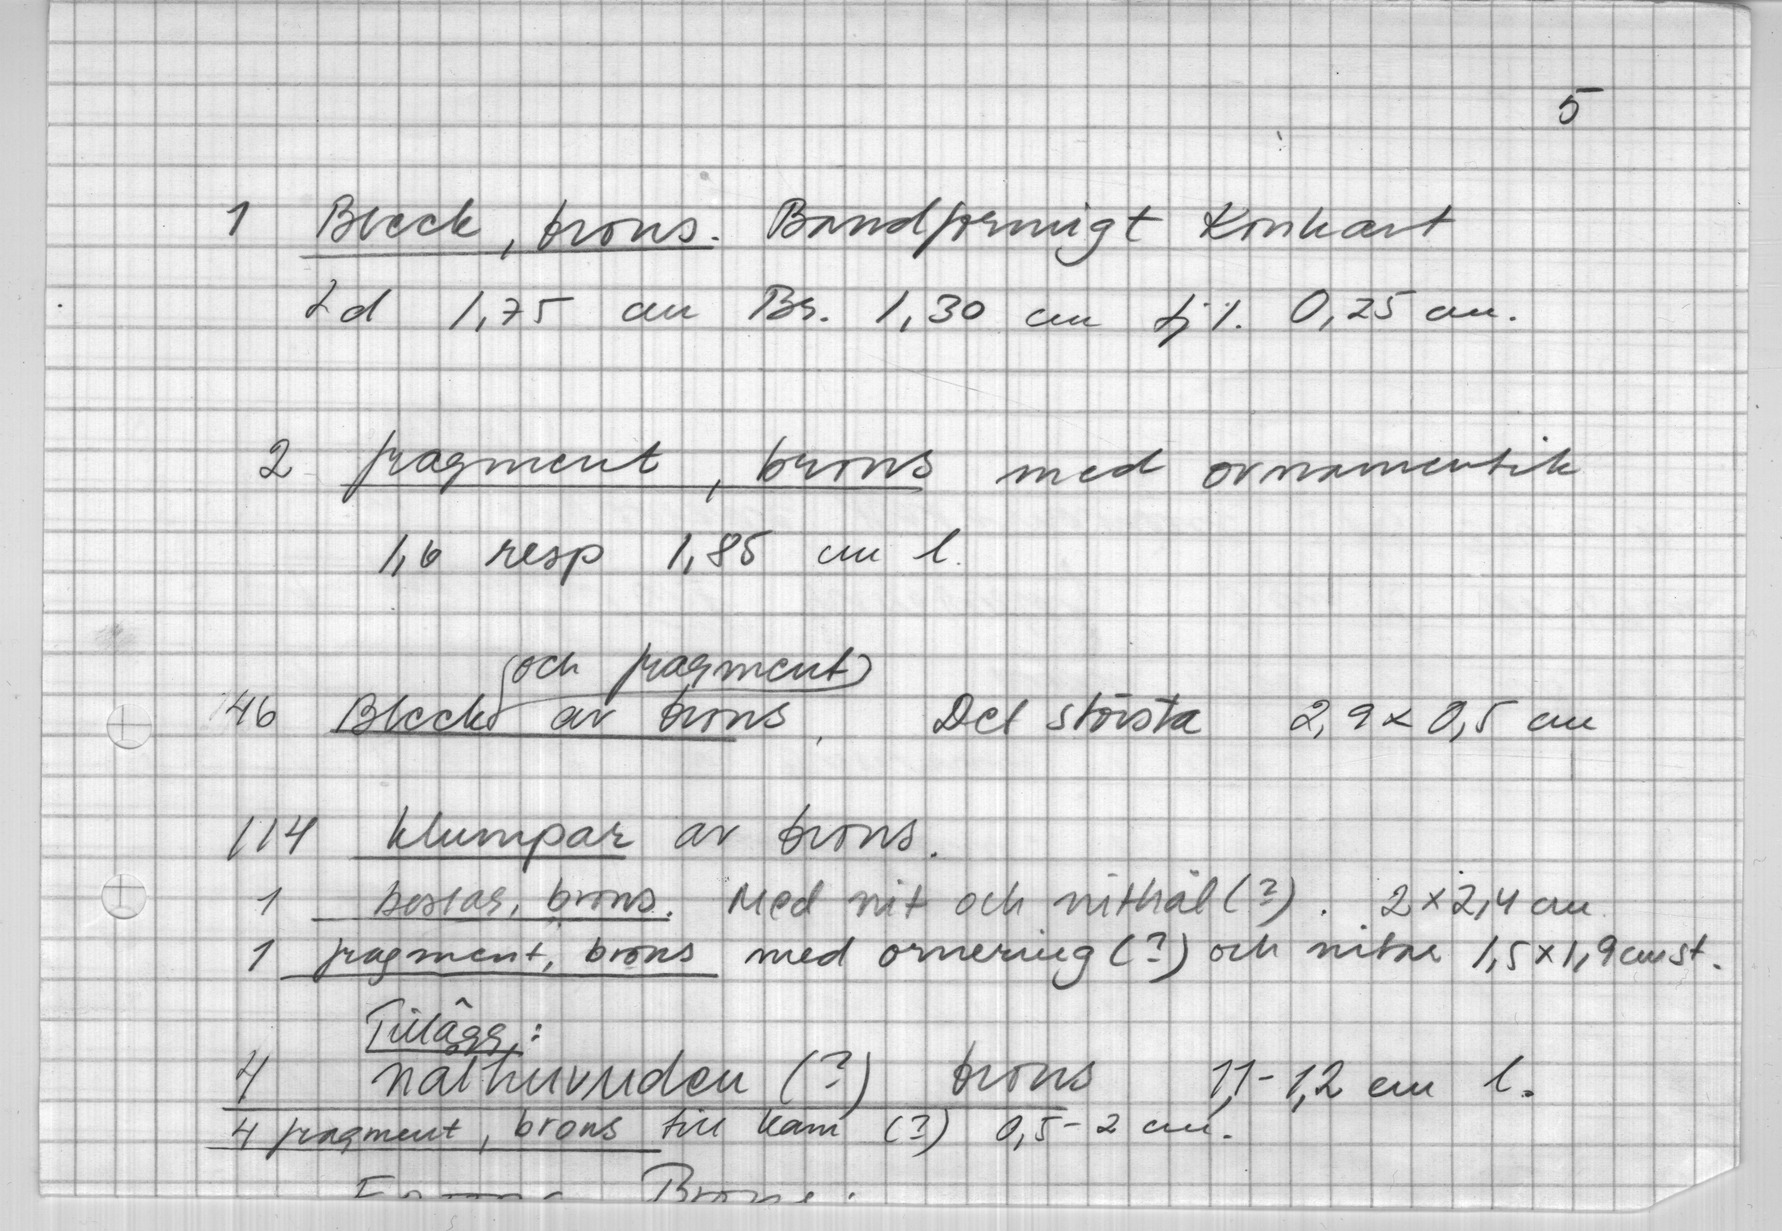 5
1 Bleck, brons. Bandformigt Konkavt
Ld 1,75 cm Br. 1,30 cm tjl. 0,25 cm.
2 fragment, brons med ornamentik
1,6 resp 1,85 cm l.
(och fragment)
46 Bleck av brons. Det största 2,9 x 0,5 cm
114 klumpar av brons.
1 beslag, brons. Med nit och nithål (?). 2 x 2,4 cm
1 fragment, brons med ornering (?) och nitar 1,5 x 1,9 cm st.
Tillägg:
4 nålhuvuden (?) brons 1,1 - 1,2 cm l.
4 fragment, brons till kam (?) 0,5 - 2 cm.